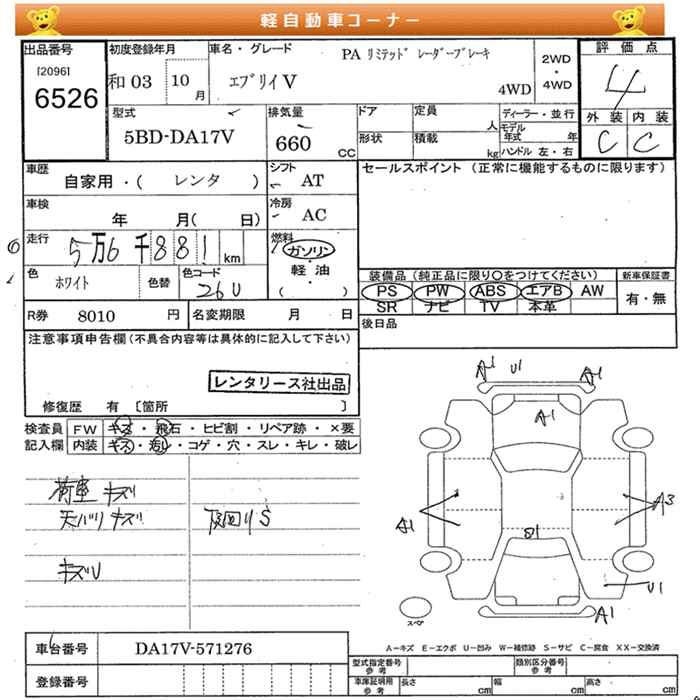 軽自動車コーナー
出品番号
[2096]
6526
初度登録年月
和 03 10 月
車名・グレード
PA リミテッド レーダーブレーキ
エブリイV
4WD
2WD
・
4WD
評価点
4
外装 内装
C C
型式
5BD-DA17V
排気量
660 CC
ドア
形状
定員 人
積載 kg
ディーラー・並行
モデル年式 年
ハンドル 左・右
車歴
自家用・( レンタ )
シフト
AT
セールスポイント (正常に機能するものに限ります)
車検
年 月( 日)
冷房
AC
走行
5万6千881 km
燃料
ガソリン
・
軽油
・
( )
色
ホワイト
色替
色コード
26U
装備品 (純正品に限り○をつけてください)
PS PW ABS エアB AW
SR ナビ TV 本革
新車保証書
有・無
R券 8010 円
名変期限 月 日
後日品
注意事項申告欄(不具合内容等は具体的に記入して下さい)
レンタリース社出品
修復歴 有 [箇所 ]
検査員
記入欄
FW キズ・飛石・ヒビ割・リペア跡・×要
内装 キズ・汚レ・コゲ・穴・スレ・キレ・破レ
荷室 キズ
天バリ キズ
キズU
下回りS
A1 U1 A1
A1
A1
A3
U1
A1
スペア
車台番号
DA17V-571276
登録番号
A-キズ E-エクボ U-凹み W-補修跡 S-サビ C-腐食 XX-交換済
型式指定番号
参考
類別区分番号
参考
車庫証明用
参考
長さ cm
幅 cm
高さ cm